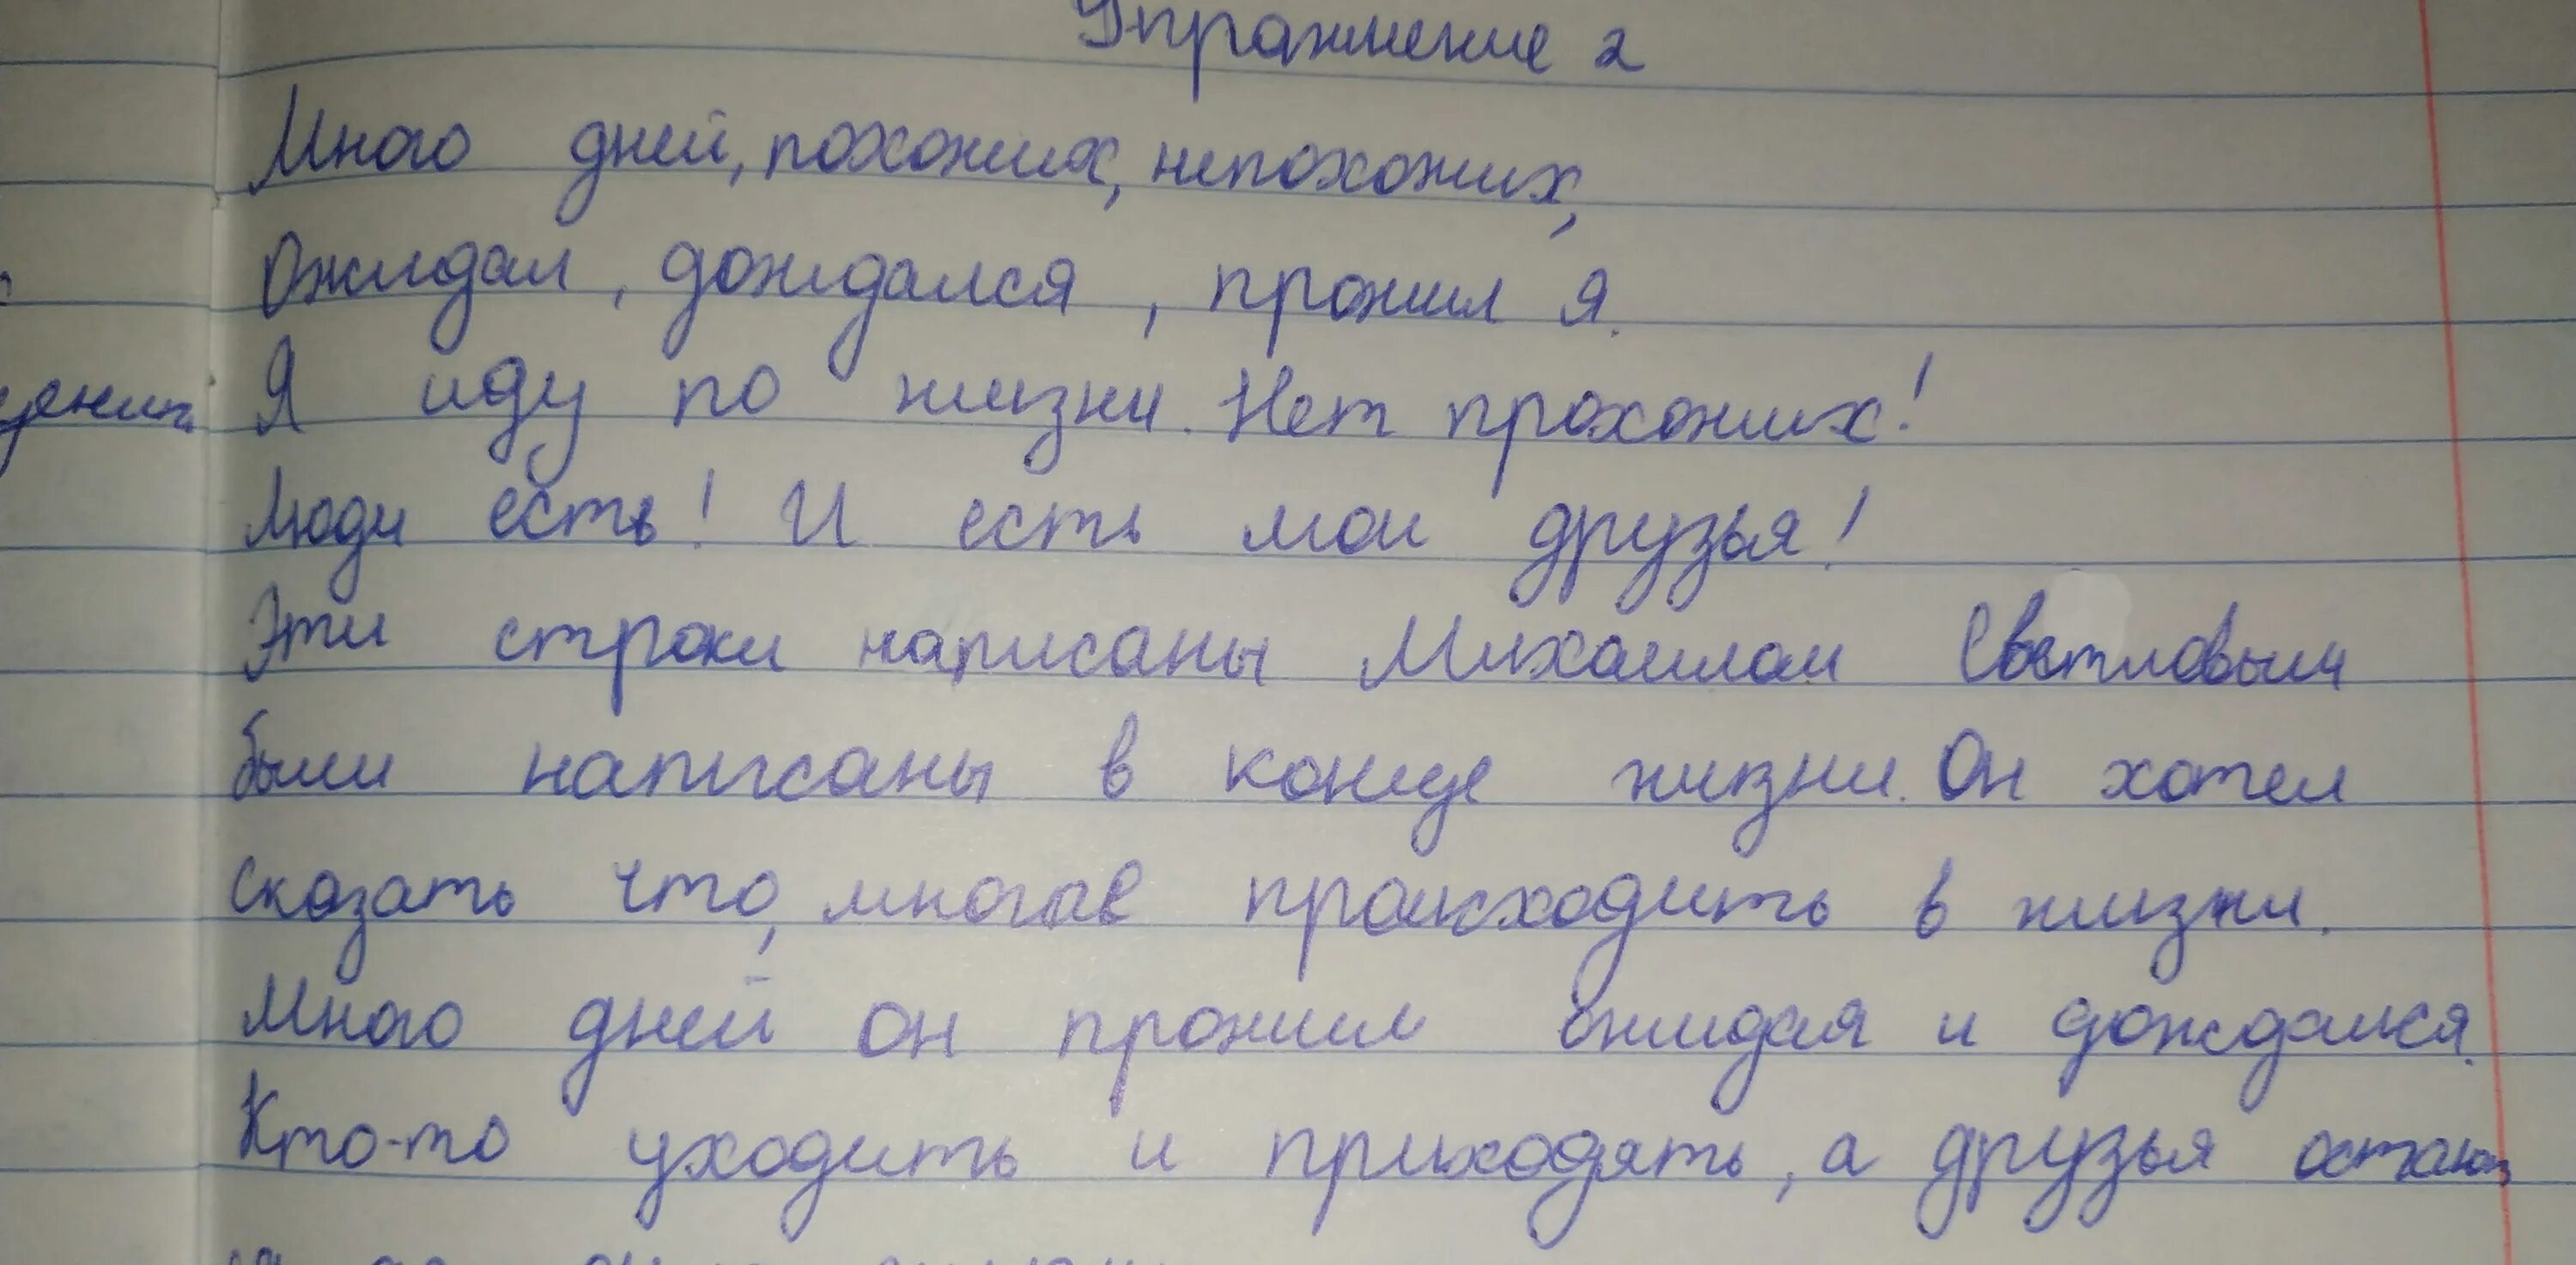 Упражнение 2
Много дней, похожих, непохожих,
Ожидал, дождался, прожил я.
Я иду по жизни. Нет прохожих!
Люди есть! И есть мои друзья!
Эти строки написаны Михаилом Светловым
были написаны в конце жизни. Он хотел
сказать что, многое происходить в жизни.
Много дней он прожил ожидая и дождался.
Кто-то уходить и приходять, а друзья остают